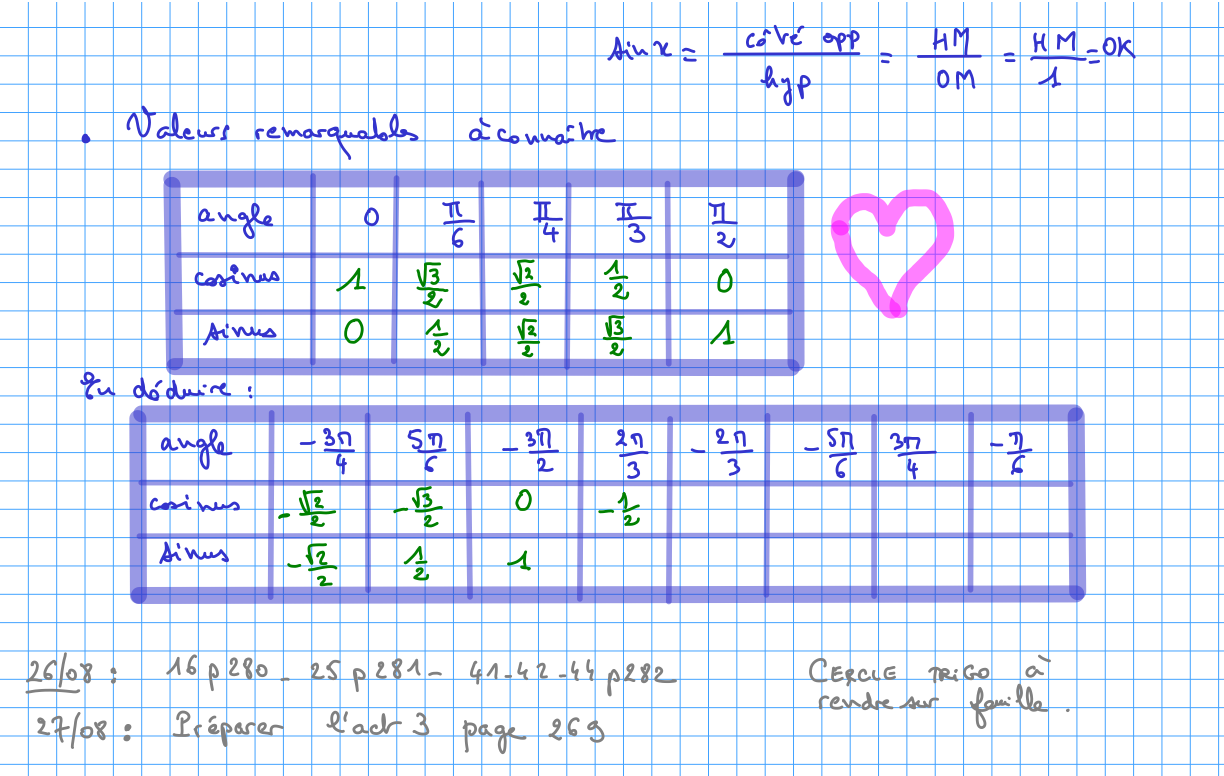 sin x = côté opp / hyp = HM / OM = HM / 1 = OK
• Valeurs remarquables à connaître
angle 0 π/6 π/4 π/3 π/2
cosinus 1 √3/2 √2/2 1/2 0
sinus 0 1/2 √2/2 √3/2 1
En déduire :
angle -3π/4 5π/6 -3π/2 2π/3 -2π/3 -5π/6 3π/4 -π/6
cosinus -√2/2 -√3/2 0 -1/2
sinus -√2/2 1/2 1
26/08 : 16 p 280 - 25 p 281 - 41-42-44 p282
CERCLE TRIGO à
rendre sur feuille.
27/08 : Préparer l'act 3 page 269